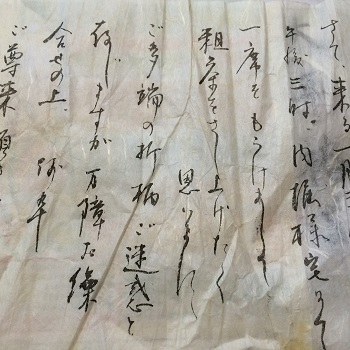 さて、来る一月
午後三時、内
宅にて
一席をもうけまして、
粗茶をさし上げたく
思いますので
ご多端の折柄 ご迷惑と
存じますが 万障お繰
合せの上、何卒
ご尊来願